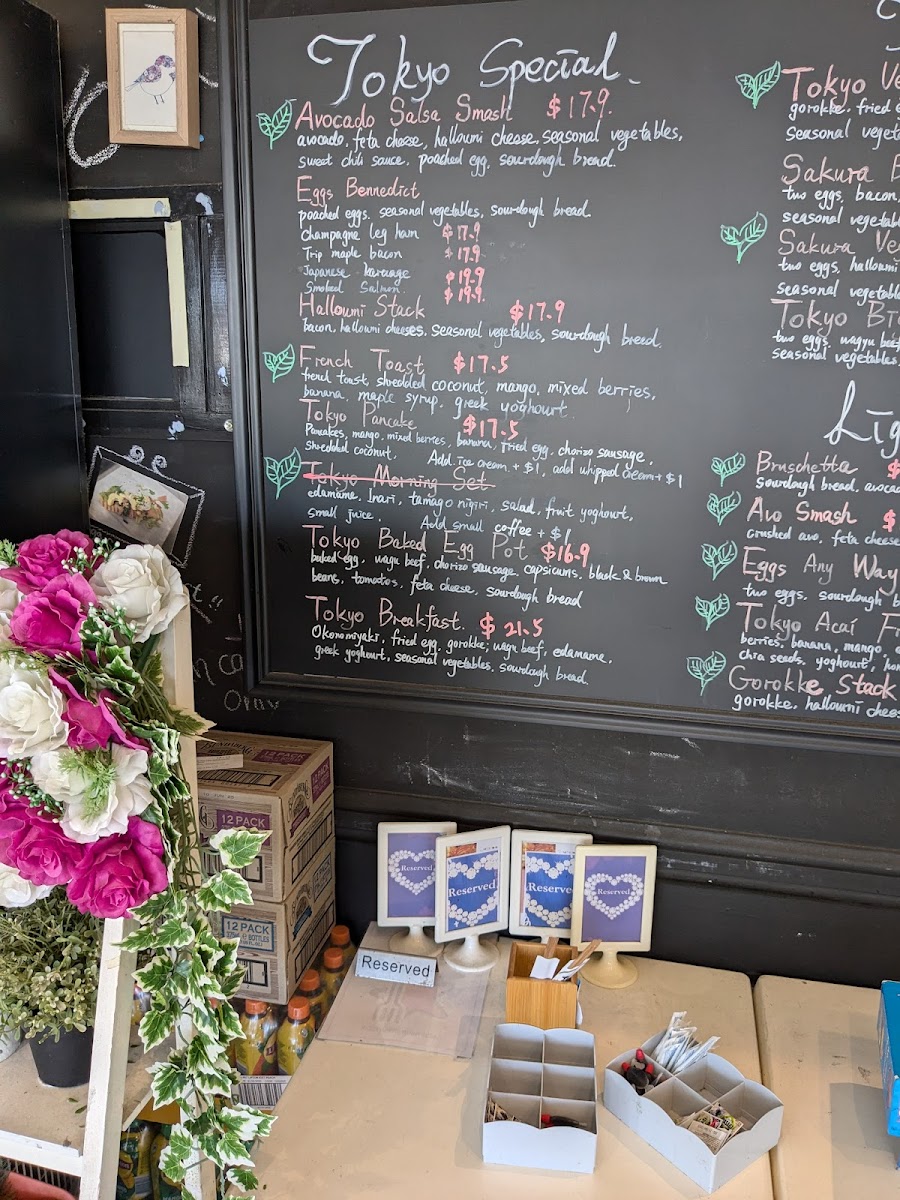 Tokyo Special
Avocado Salsa Smash $17.9.
avocado, feta cheese, halloumi cheese, seasonal vegetables,
sweet chili sauce, poached egg, sourdough bread.
Eggs Bennedict
poached eggs, seasonal vegetables, sourdough bread
Champagne leg ham $17.9
Trip maple bacon $17.9
Japanese karaage $19.9
Smoked Salmon $19.9.
Halloumi Stack $17.9
bacon, halloumi cheeses, seasonal vegetables, sourdough bread.
French Toast $17.5
french toast, shredded coconut, mango, mixed berries,
banana, maple syrup, greek yoghourt.
Tokyo Pancake $17.5
Pancakes, mango, mixed berries, banana, fried egg, chorizo sausage,
Shredded coconut. Add ice cream + $1, add whipped cream + $1
Tokyo Morning Set
edamame, Inari, tamago nigiri, salad, fruit yoghourt,
small juice. Add small coffee + $1
Tokyo Baked Egg Pot $16.9
baked egg, wagu beef, chorizo sausage, capsicums, black & brown
beans, tomatoes, feta cheese, sourdough bread
Tokyo Breakfast. $21.5
Okonomiyaki, fried egg, gorokke, wagu beef, edamame,
greek yoghourt, seasonal vegetables, sourdough bread.
Tokyo Ve
gorokke, fried e
seasonal vegeta
Sakura B
two eggs, bacon,
seasonal vegeta
Sakura Ve
two eggs, halloumi
seasonal vegetable
Tokyo
two eggs, wagyu beef
seasonal vegetables
Lig
Bruschetta $
Sourdough bread, avoca
Avo Smash $
crushed avo, feta cheese
Eggs Any Way
two eggs, sourdough b
Tokyo Acaí F
berries, banana, mango,
chia seeds, yoghourt, hon
Gorokke Stack
gorokke, halloumi chees
12 PACK
12 PACK
BOTTLES
Reserved
Reserved
Reserved
Reserved
Reserved